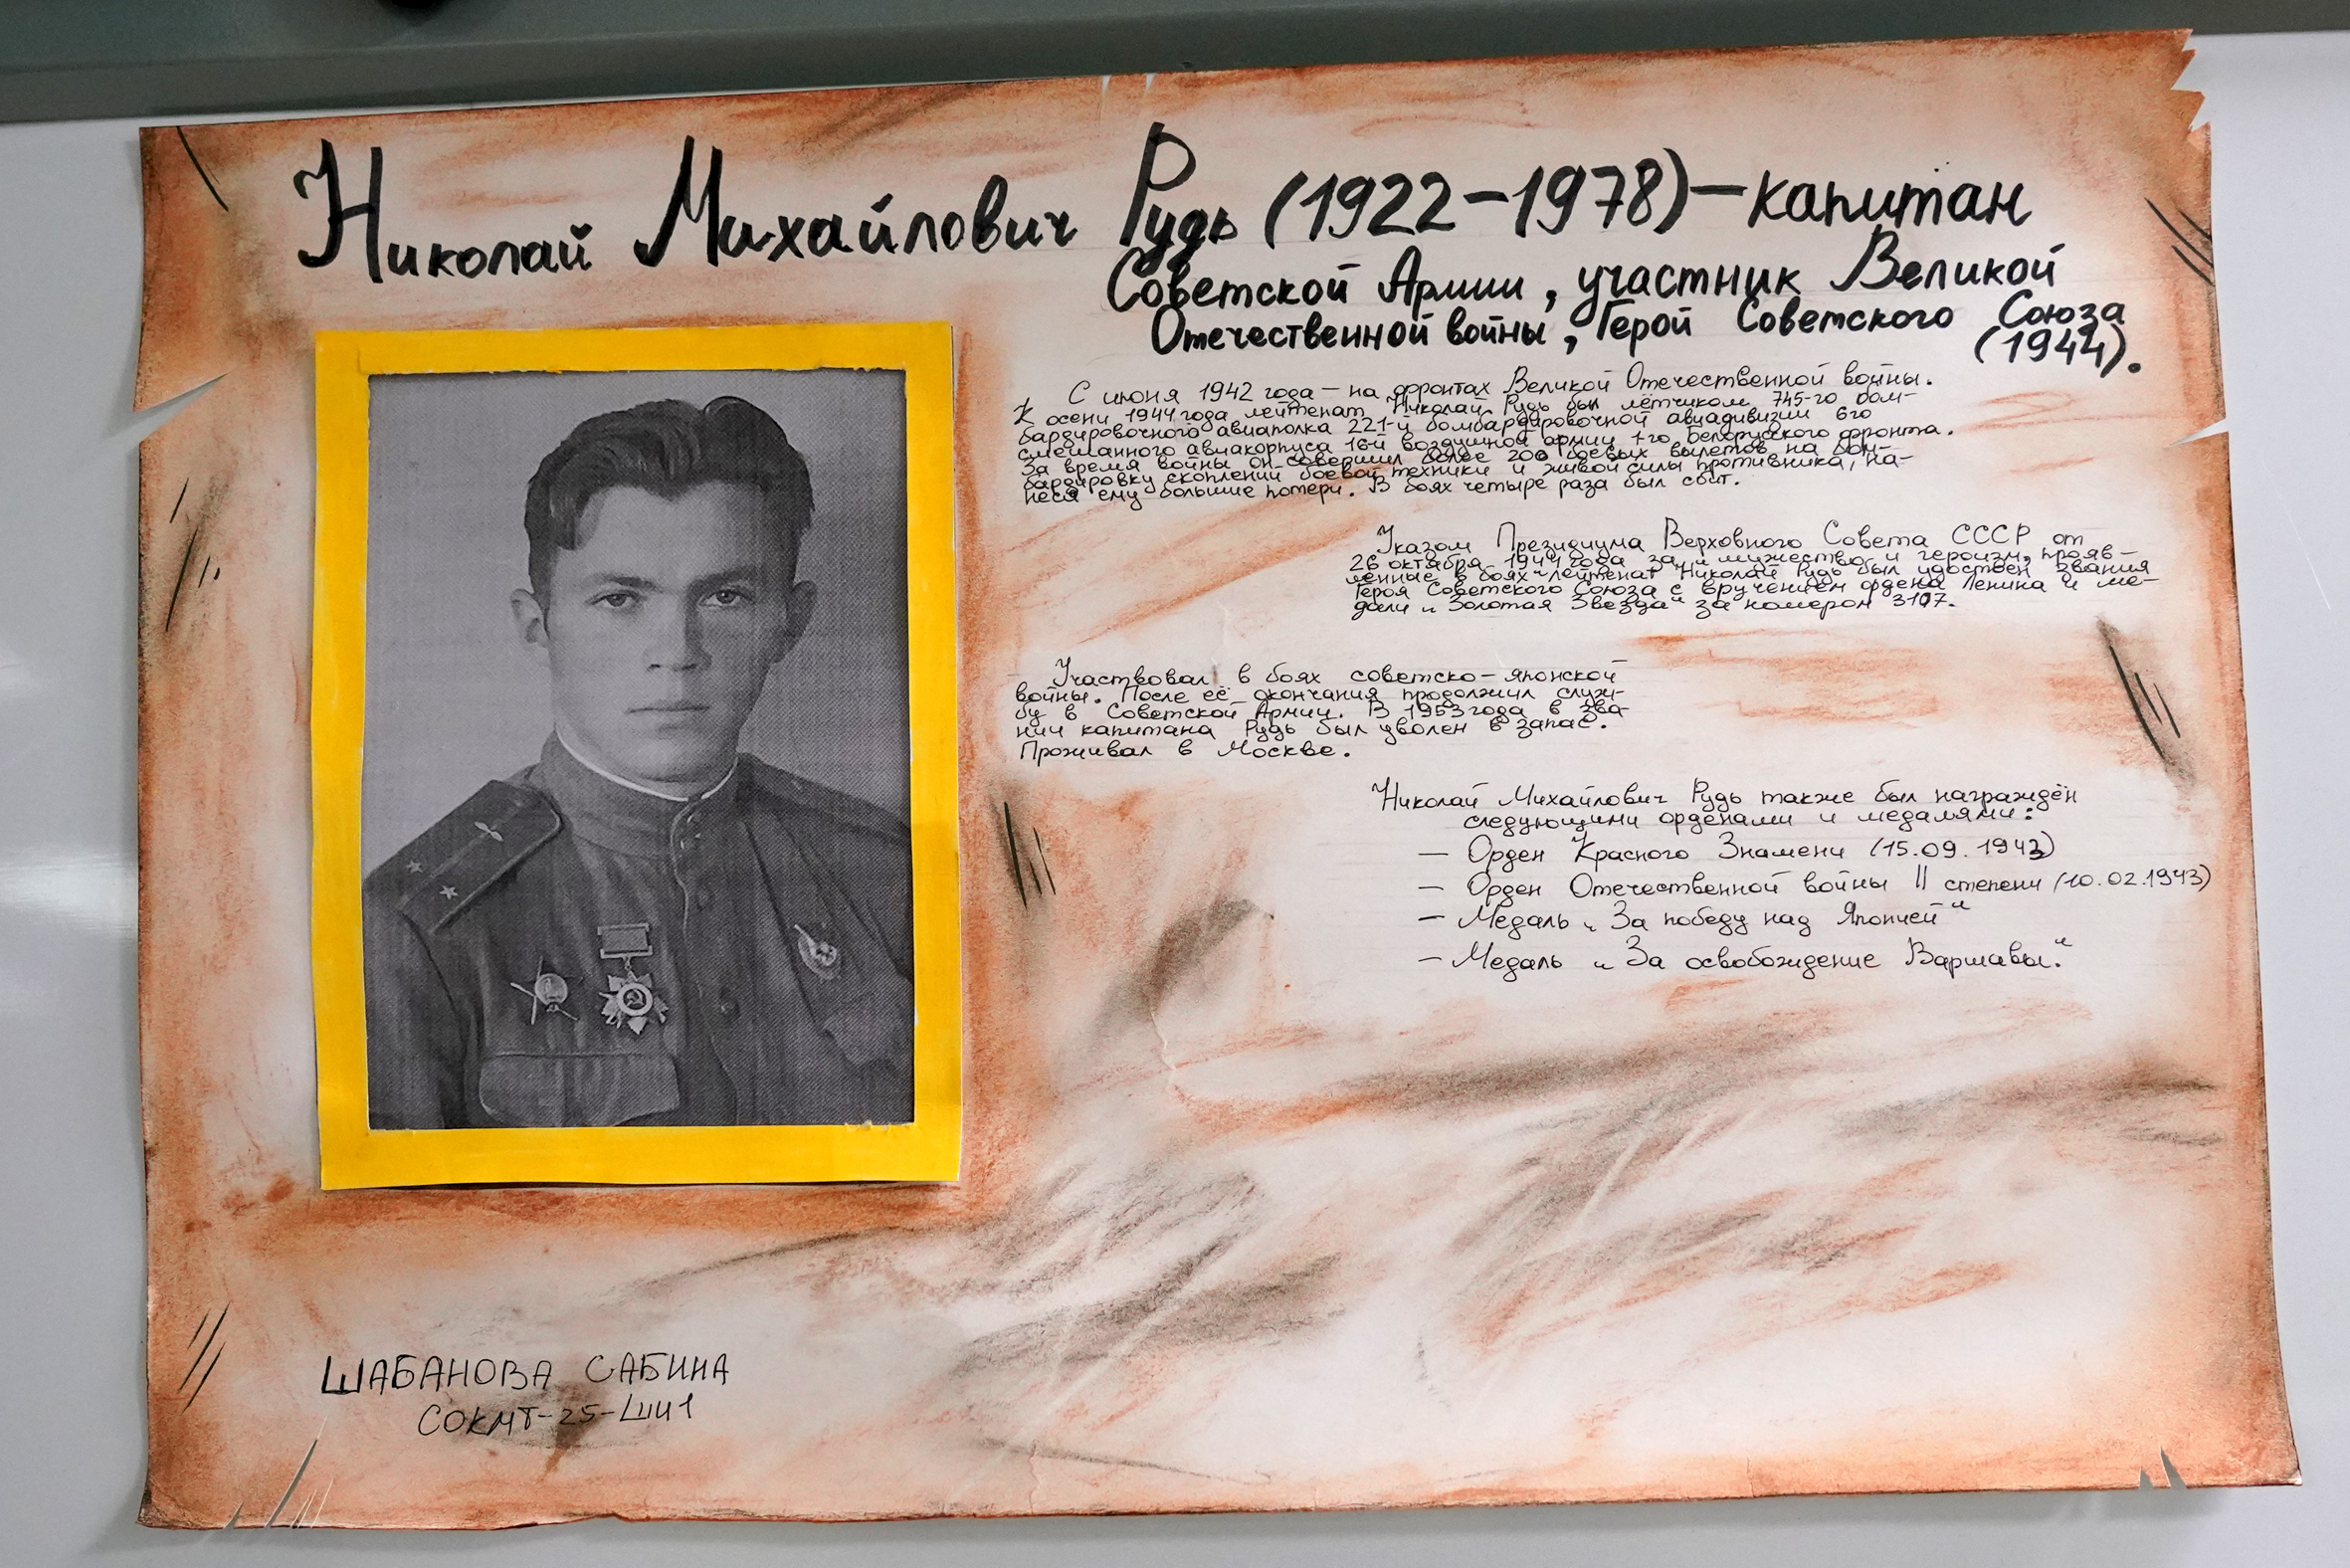 Николай Михайлович Рудь (1922-1978)-капитан
Советской Армии, участник Великой
Отечественной войны, Герой Советского Союза
(1944).
С июня 1942 года - на фронтах Великой Отечественной войны.
К осени 1944 года лейтенат Николай Рудь был лётчиком 745-го бом-
бардировочного авиаполка 221-й бомбардировочной авиадивизии 6го
смешанного авиакорпуса 16-й воздушной армии 1-го Белорусского фронта.
За время войны он совершил более 200 боевых вылетов на бом-
бардировку скоплений боевой техники и живой силы противника, на-
неся ему большие потери. В боях четыре раза был сбит.
Указом Президиума Верховного Совета СССР от
26 октября 1944 года за „мужество и героизм, прояв-
ленные в боях" лейтенат Николай Рудь был удостоен звания
Героя Советского Союза с вручением ордена Ленина и ме-
дали „Золотая Звезда" за номером 3107.
Участвовал в боях советско-японской
войны. После её окончания продолжил служ-
бу в Советской Армии. В 1953 года в зва-
нии капитана Рудь был уволен в запас.
Проживал в Москве.
Николай Михайлович Рудь также был награждён
следующими орденами и медалями:
- Орден Красного Знамени (15.09.1943)
- Орден Отечественной войны II степени (10.02.1943)
- Медаль „За победу над Японией"
- Медаль „За освобождение Варшавы."
ШАБАНОВА САБИНА
СОКМТ-25-ШИ1